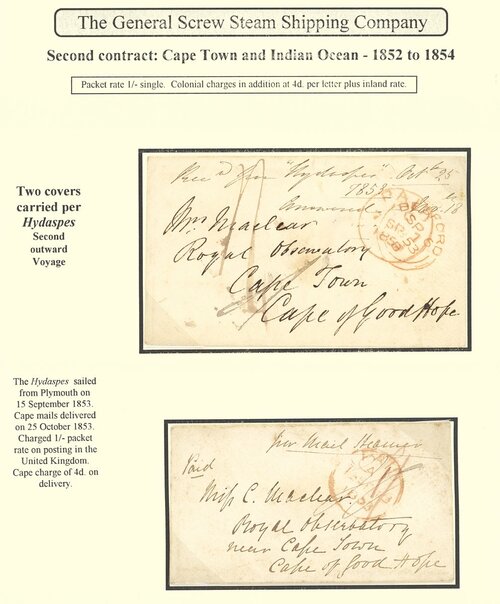 The General Screw Steam Shipping Company
Second contract: Cape Town and Indian Ocean - 1852 to 1854
Packet rate 1/- single. Colonial charges in addition at 4d. per letter plus inland rate.
Two covers
carried per
Hydaspes
Second
outward
Voyage
Rec'd per "Hydaspes" Oct 25
1853
Answered
Mrs Maclear
Royal Observatory
Cape Town
Cape of Good Hope
The Hydaspes sailed
from Plymouth on
15 September 1853.
Cape mails delivered
on 25 October 1853.
Charged 1/- packet
rate on posting in the
United Kingdom.
Cape charge of 4d. on
delivery.
per Mail Steamer
Paid
Miss C. Maclear
Royal Observatory
near Cape Town
Cape of Good Hope